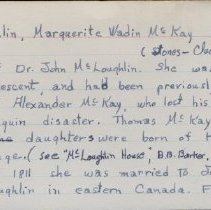 lin, Marguerite Wadin McKay
(Jones-Cla
Dr. John McLoughlin. She wa
escent, and had been previously
Alexander McKay, who lost his
quin disaster. Thomas McKay
daughters were born of t
ge. (see "McLoughlin House", B.B. Barker,
1811 she was married to J
ughlin in eastern Canada. F